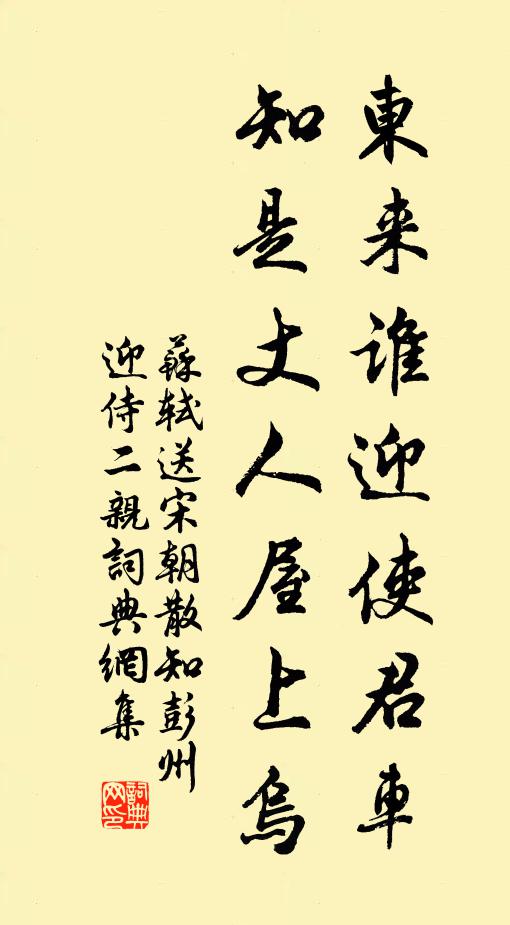 東来誰迎使君車
知是丈人屋上烏
蘇軾送宋朝散知彭州
迎侍二親詞典網集
詞典
网印